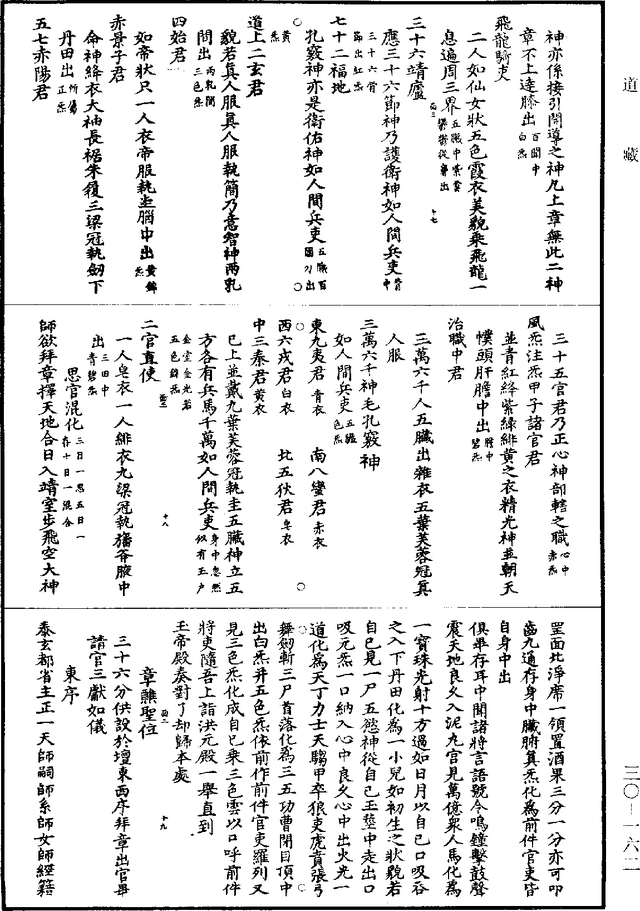 道藏
神亦係接引開導之神凡上章無此二神
章不上達膝出百關中白炁
飛龍騎吏
二人如仙女狀五色霞衣美貌乘飛龍一
息遍周三界五臟中紫雲欝欝從鼻出
三十六靖廬
應三十六節神乃護衛神如人間兵吏骨中
三十六骨節出紅炁
七十二福地
孔竅神亦是衛佑神如人間兵吏五臟百關刀出
黃炁
道上二玄君
貌若真人服真人服執簡乃意智神兩乳
間出兩乳間三色炁
四始君
如帝狀只一人衣帝服執圭腦中出黃錦炁
赤景子君
命神絳衣大袖長裾朱履三梁冠執劒下
丹田出所傷正炁
五七赤陽君
三十五官君乃正心神部轄之職心中赤炁
風炁注炁甲子諸官君
並青紅絳紫綠緋黃之衣精光神並朝天
幞頭肝膽中出膽中碧炁
治職中君
三萬六千人五臟出雜衣五葉芙蓉冠真
人服
三萬六千神毛孔竅神
如人間兵吏五臟色炁
東九夷君青衣　南八蠻君赤衣
西六戎君白衣　北五狄君皂衣
中三秦君黃衣
已上並戴九葉芙蓉冠執圭五臟神立五
方各有兵馬千萬如人間兵吏身中忽然似有玉戶
金堂金光若五色錦炁
二官直使
一人皂衣一人緋衣九梁冠執簿笏腋中
出三田中青碧炁
思官混化三日一思五日一存十日一混合
師欲拜章擇天地合日入靖室步飛空大神
罡面北淨席一領置酒果三分一分亦可叩
齒九通存身中臟腑真炁化為前件官吏皆
自身中出
俱畢存耳中聞諸將言語號令鳴鐘擊鼓聲
震天地良久入泥九宮見萬億衆人馬化為
一寶珠光射十方過如日月以自己口吸吞
之入下丹田化為一小兒如初生之狀貌若
自己見一尸五慾神從自己玉莖中走出口
吸元炁一口納入心中良久心中出火光一
道化為天丁力士天騶甲卒狼吏虎賁張弓
舞劒斬三尸首落化為三五功曹閉目頂中
出白炁并五色炁依前作前件官吏羅列又
見三色炁化成自己乘三色雲以口呼前件
將吏隨吾上詣洪元殿一舉直到
玉帝殿奏對了却歸本處
章醮聖位
三十六分供設於壇東西序拜章出官畢
請官三獻如儀
東序
泰玄都省主正一天師嗣師系師女師經籍
三〇—一六二